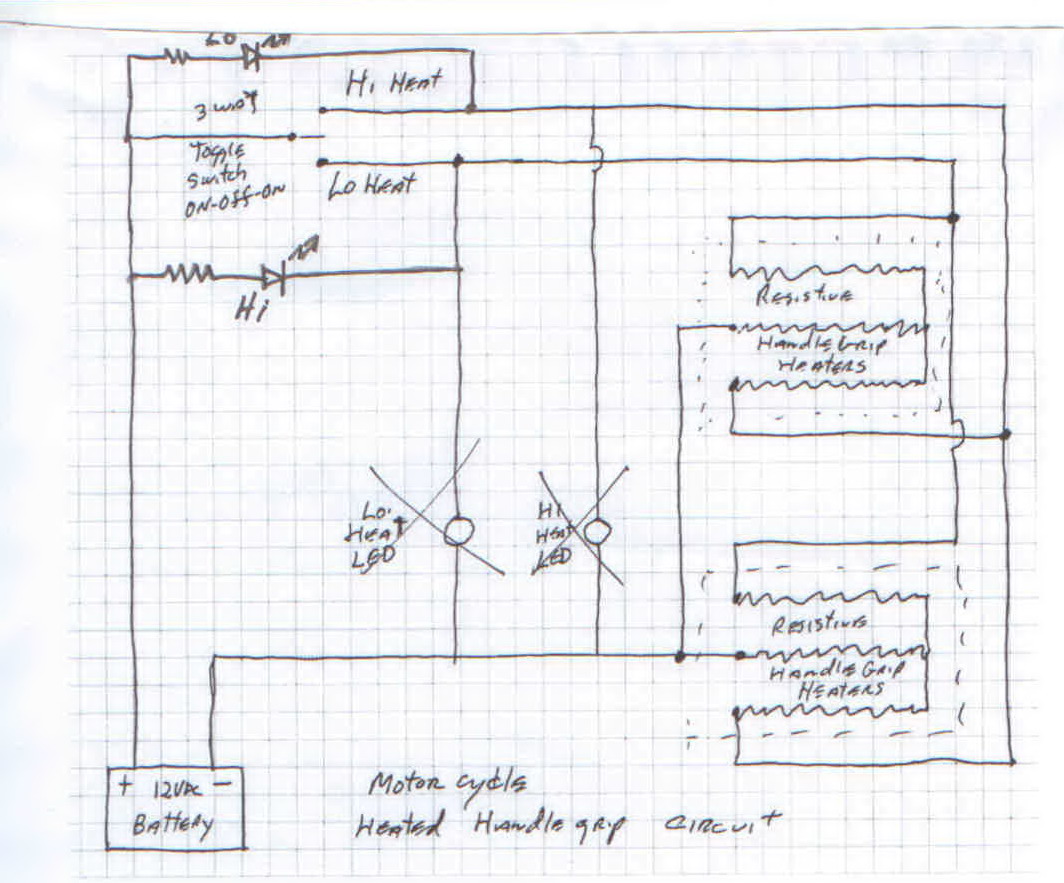 LO
Hi Heat
3 way
Toggle
Switch
ON-OFF-ON
Lo Heat
Hi
Resistive
Handle Grip
Heaters
Lo
Heat
LED
Hi
Heat
LED
Resistive
Handle Grip
Heaters
+ 12VDC −
Battery
Motor cycle
Heated Handle grip circuit